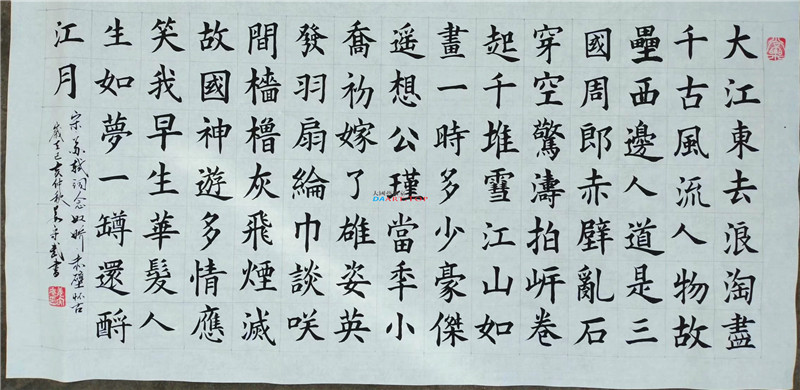 大江東去浪淘盡
千古風流人物故
壘西邊人道是三
國周郎赤壁亂石
穿空驚濤拍岍卷
起千堆雪江山如
畫一時多少豪傑
遥想公瑾當秊小
喬初嫁了雄姿英
發羽扇綸巾談咲
間檣櫓灰飛煙滅
故國神遊多情應
笑我早生華髮人
生如夢一罇還酹
江月
宋苏轼词念奴娇赤壁怀古
己亥仲秋書